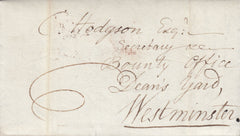 C Hodgson Esqr.
Secretary &c
Bounty Office
Dean's Yard,
Westminster.